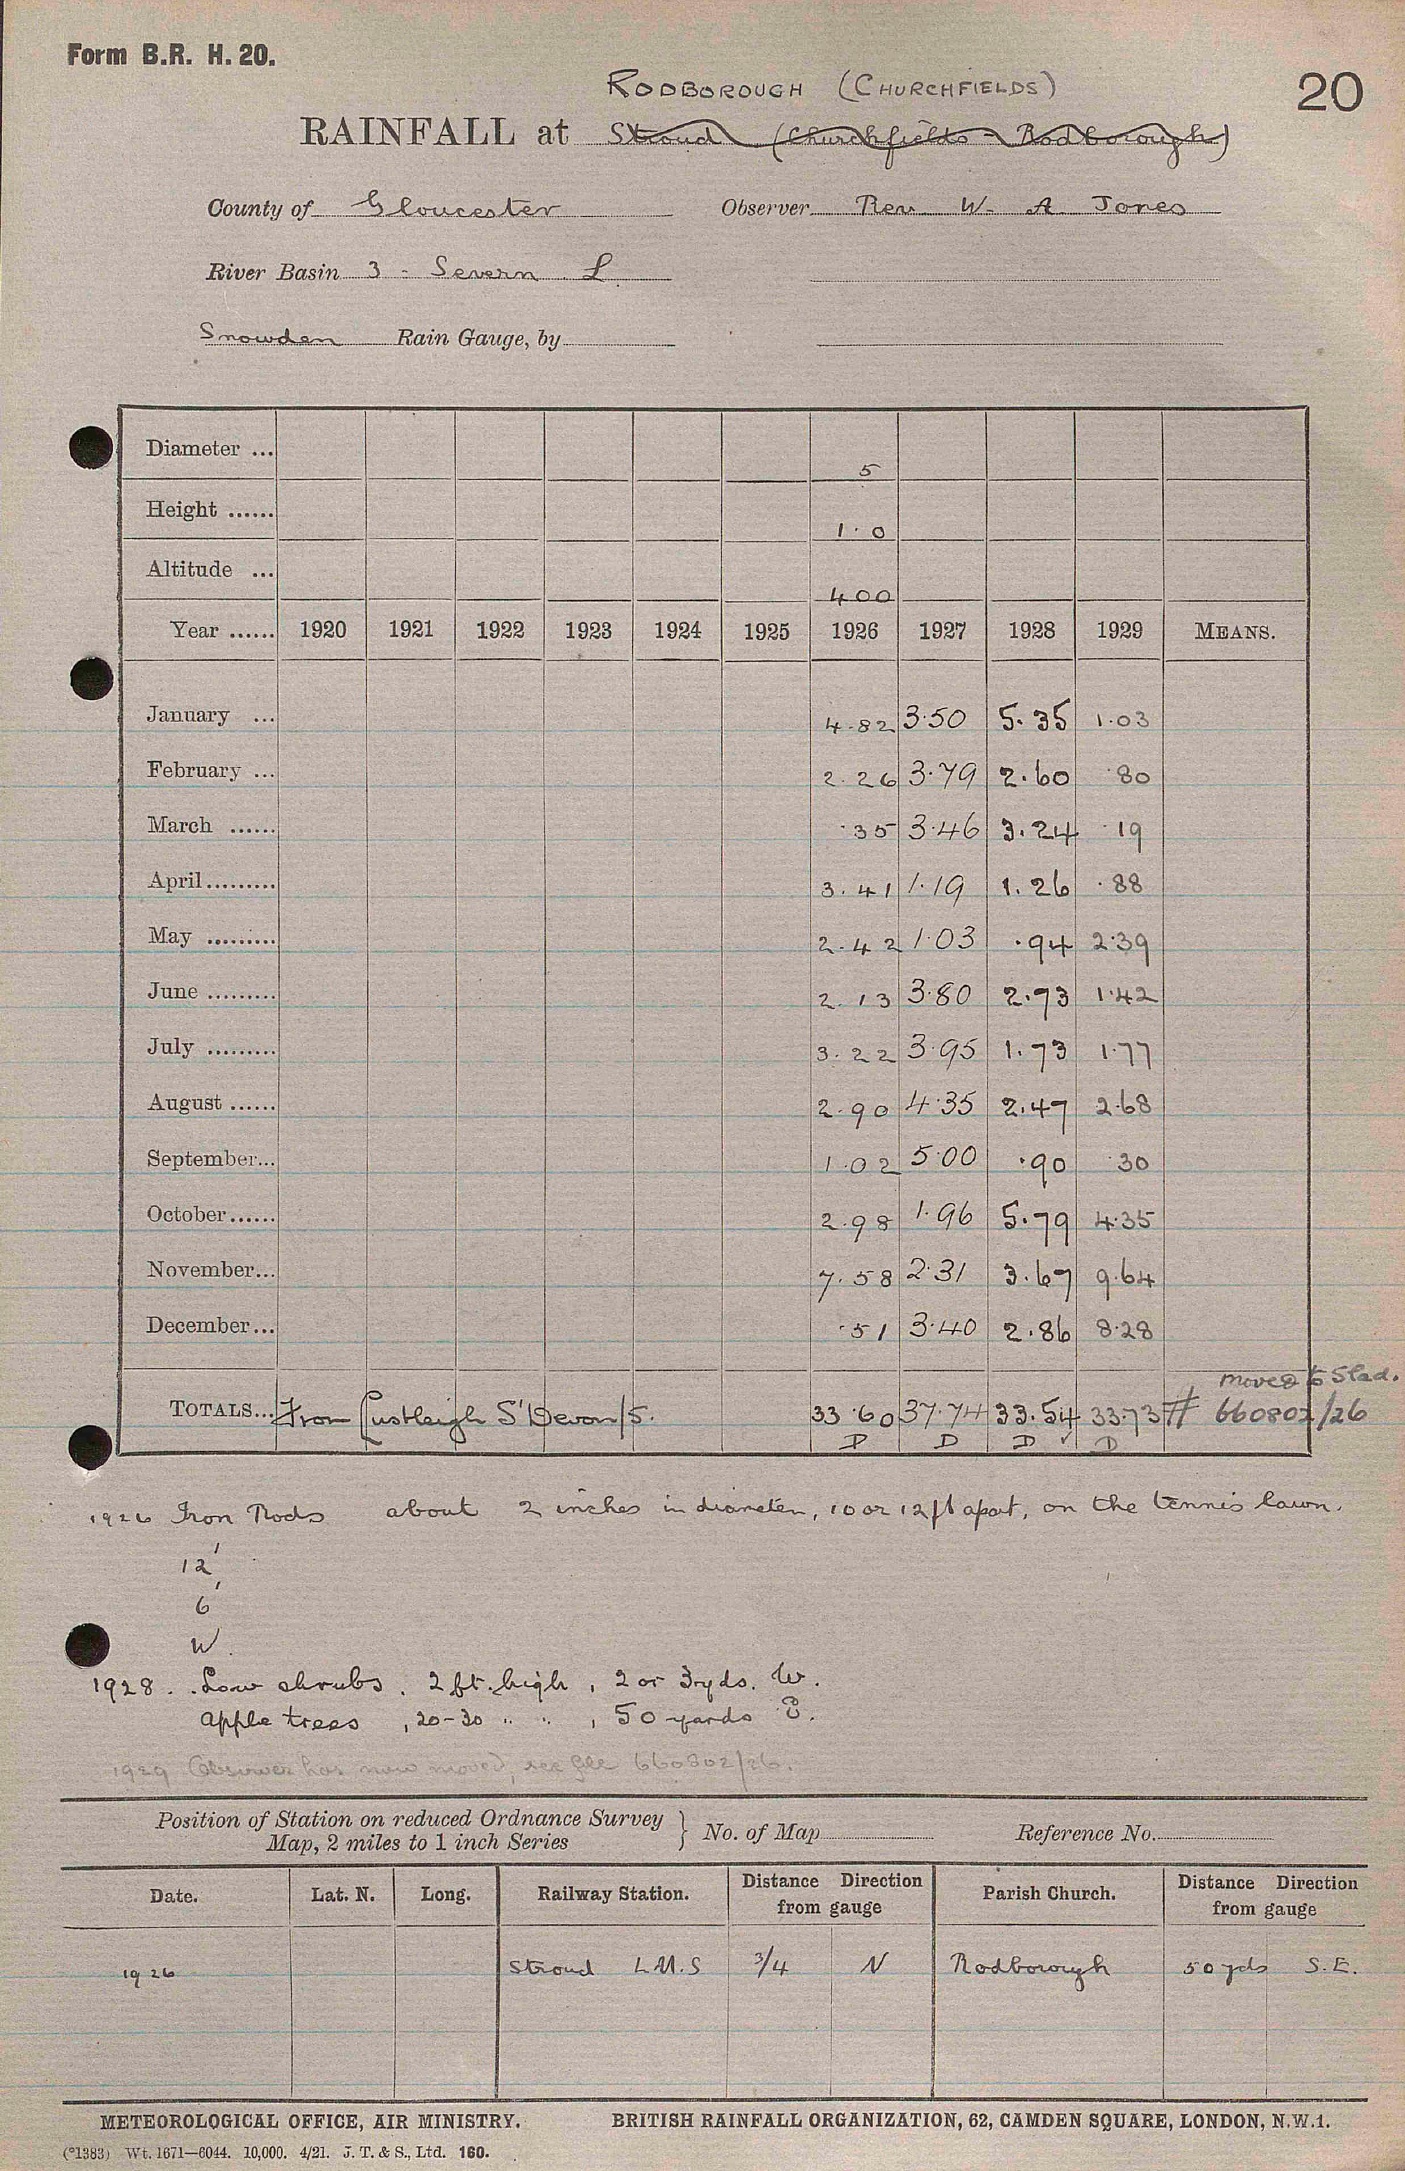 Form B.R. H. 20.
20
RODBOROUGH (CHURCHFIELDS)
RAINFALL at Stroud (Churchfields - Rodborough)
County of Gloucester Observer Rev W. A Jones
River Basin 3 - Severn L
Snowden Rain Gauge, by
Diameter ... 5
Height ...... 1.0
Altitude ... 400
Year ...... 1920 1921 1922 1923 1924 1925 1926 1927 1928 1929 MEANS.
January ... 4.82 3.50 5.35 1.03
February ... 2.26 3.79 2.60 .80
March ...... .35 3.46 3.24 .19
April......... 3.41 1.19 1.26 .88
May ......... 2.42 1.03 .94 2.39
June ......... 2.13 3.80 2.73 1.42
July ......... 3.22 3.95 1.73 1.77
August ...... 2.90 4.35 2.47 2.68
September... 1.02 5.00 .90 .30
October...... 2.98 1.96 5.79 4.35
November... 7.58 2.31 3.67 9.64
December... .51 3.40 2.86 8.28
moved to Slad.
TOTALS... From Lustleigh S' Devon/5. 33.60 37.74 33.54 33.73 # 660802/26
D D D ✓ D
1926 Iron Rods about 2 inches in diameter, 10 or 12 ft apart, on the tennis lawn.
12'
6'
W.
1928. Low shrubs, 2 ft. high, 2 or 3 yds. W.
apple trees, 20-30 " ", 50 yards E.
1929 Observer has now moved, see 660802/26.
Position of Station on reduced Ordnance Survey
Map, 2 miles to 1 inch Series } No. of Map Reference No.
Date. Lat. N. Long. Railway Station. Distance Direction from gauge Parish Church. Distance Direction from gauge
1926 Stroud L.M.S 3/4 N Rodborough 50 yds S.E.
METEOROLOGICAL OFFICE, AIR MINISTRY. BRITISH RAINFALL ORGANIZATION, 62, CAMDEN SQUARE, LONDON, N.W.1.
(*1383) Wt. 1671—6044. 10,000. 4/21. J. T. & S., Ltd. 160.